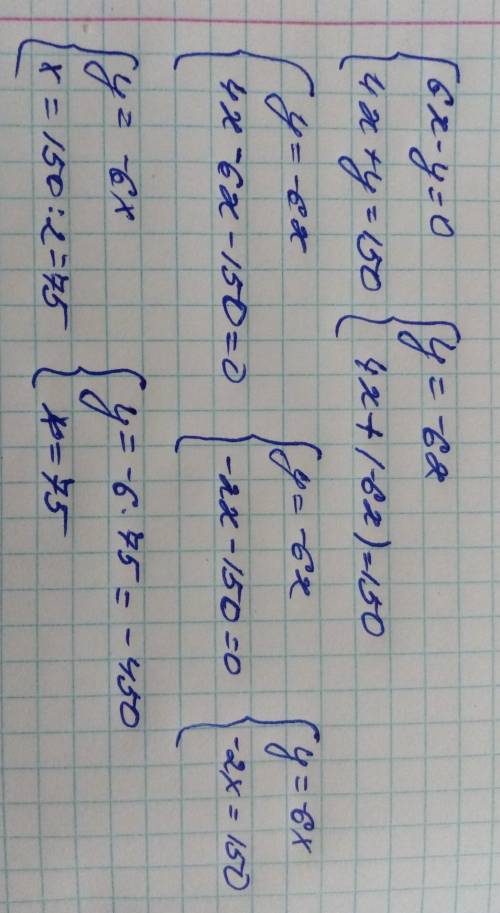 6x-y=0
4x+y=150
y=-6x
4x+(-6x)=150
y=-6x
4x-6x-150=0
y=-6x
-2x-150=0
y=-6x
-2x=150
y=-6x
x=150:2=75
y=-6·75=-450
x=75